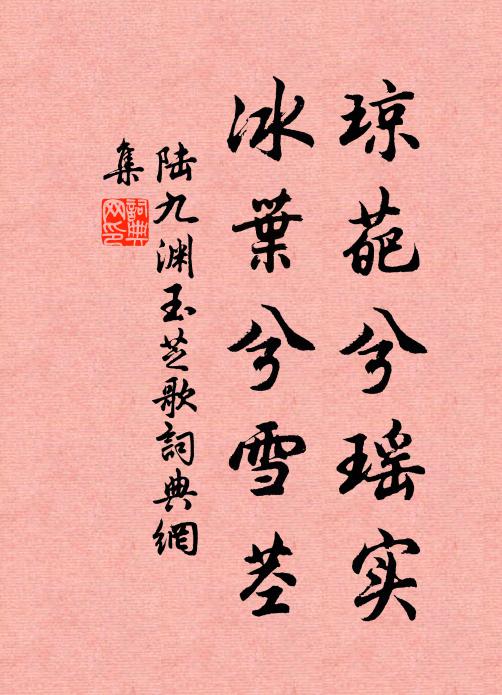 琼葩兮瑶实
冰葉兮雪茎
陆九渊玉芝歌詞典網
集
詞典网印